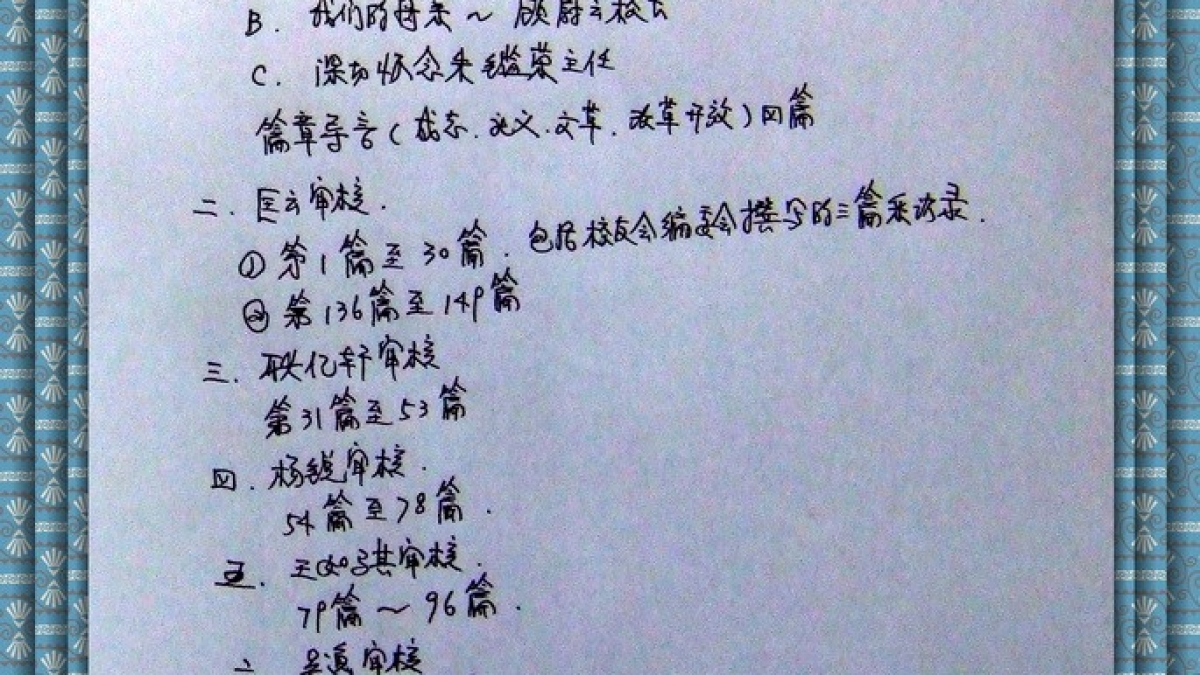 B. 我们的母亲～顾蔚云校长
C. 深切怀念朱继荣主任
篇章导言(成志、北义、文革、改革开放)四篇
二. 匡云审核.
① 第1篇至30篇. 包括校友会编委会撰写的三篇采访录.
② 第136篇至149篇
三. 耿亿轩审核
第31篇至53篇
四. 杨锐审核.
54篇至78篇.
五. 王如骐审核.
79篇～96篇.
审核